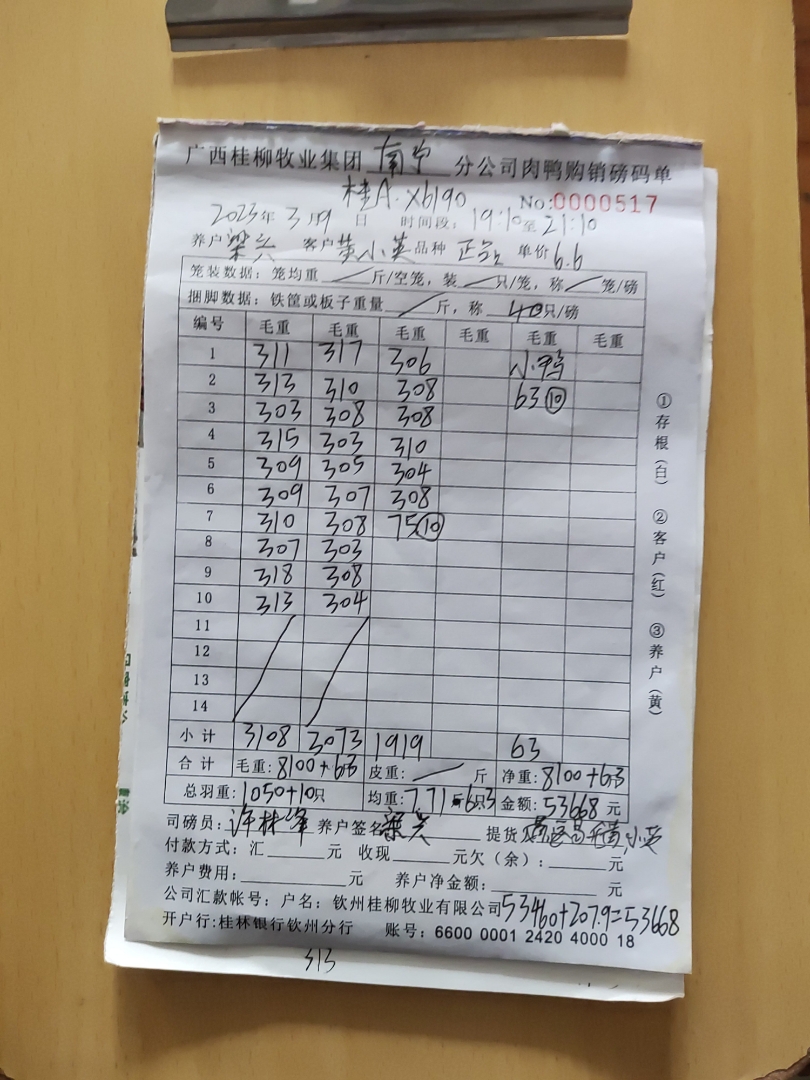 广西桂柳牧业集团 南宁 分公司肉鸭购销磅码单
桂A·X6190 No:0000517
2023年 3月9 日 时间段: 19:10至21:10
养户 梁兴 客户 黄小英 品种 正品 单价 6.6
笼装数据: 笼均重 / 斤/空笼, 装 / 只/笼, 称 / 笼/磅
捆脚数据: 铁筐或板子重量 / 斤, 称 40只/磅
编号 毛重 毛重 毛重 毛重 毛重 毛重
1 311 317 306 小鸭
2 313 310 308 63⑩
3 303 308 308
4 315 303 310
5 309 305 304
6 309 307 308
7 310 308 75⑩
8 307 303
9 318 308
10 313 304
11
12
13
14
小计 3108 3073 1919 63
合计 毛重: 8100+63 皮重: / 斤 净重: 8100+63
总羽重: 1050+10只 均重: 7.71 6.3 金额: 53668 元
司磅员: 许林峰 养户签名 梁兴 提货 黄小英
付款方式: 汇 元 收现 元欠(余): 元
养户费用: 元 养户净金额: 元
公司汇款帐号: 户名: 钦州桂柳牧业有限公司 53460+207.9=53668
开户行:桂林银行钦州分行 账号: 6600 0001 2420 4000 18
①存根(白) ②客户(红) ③养户(黄)
313